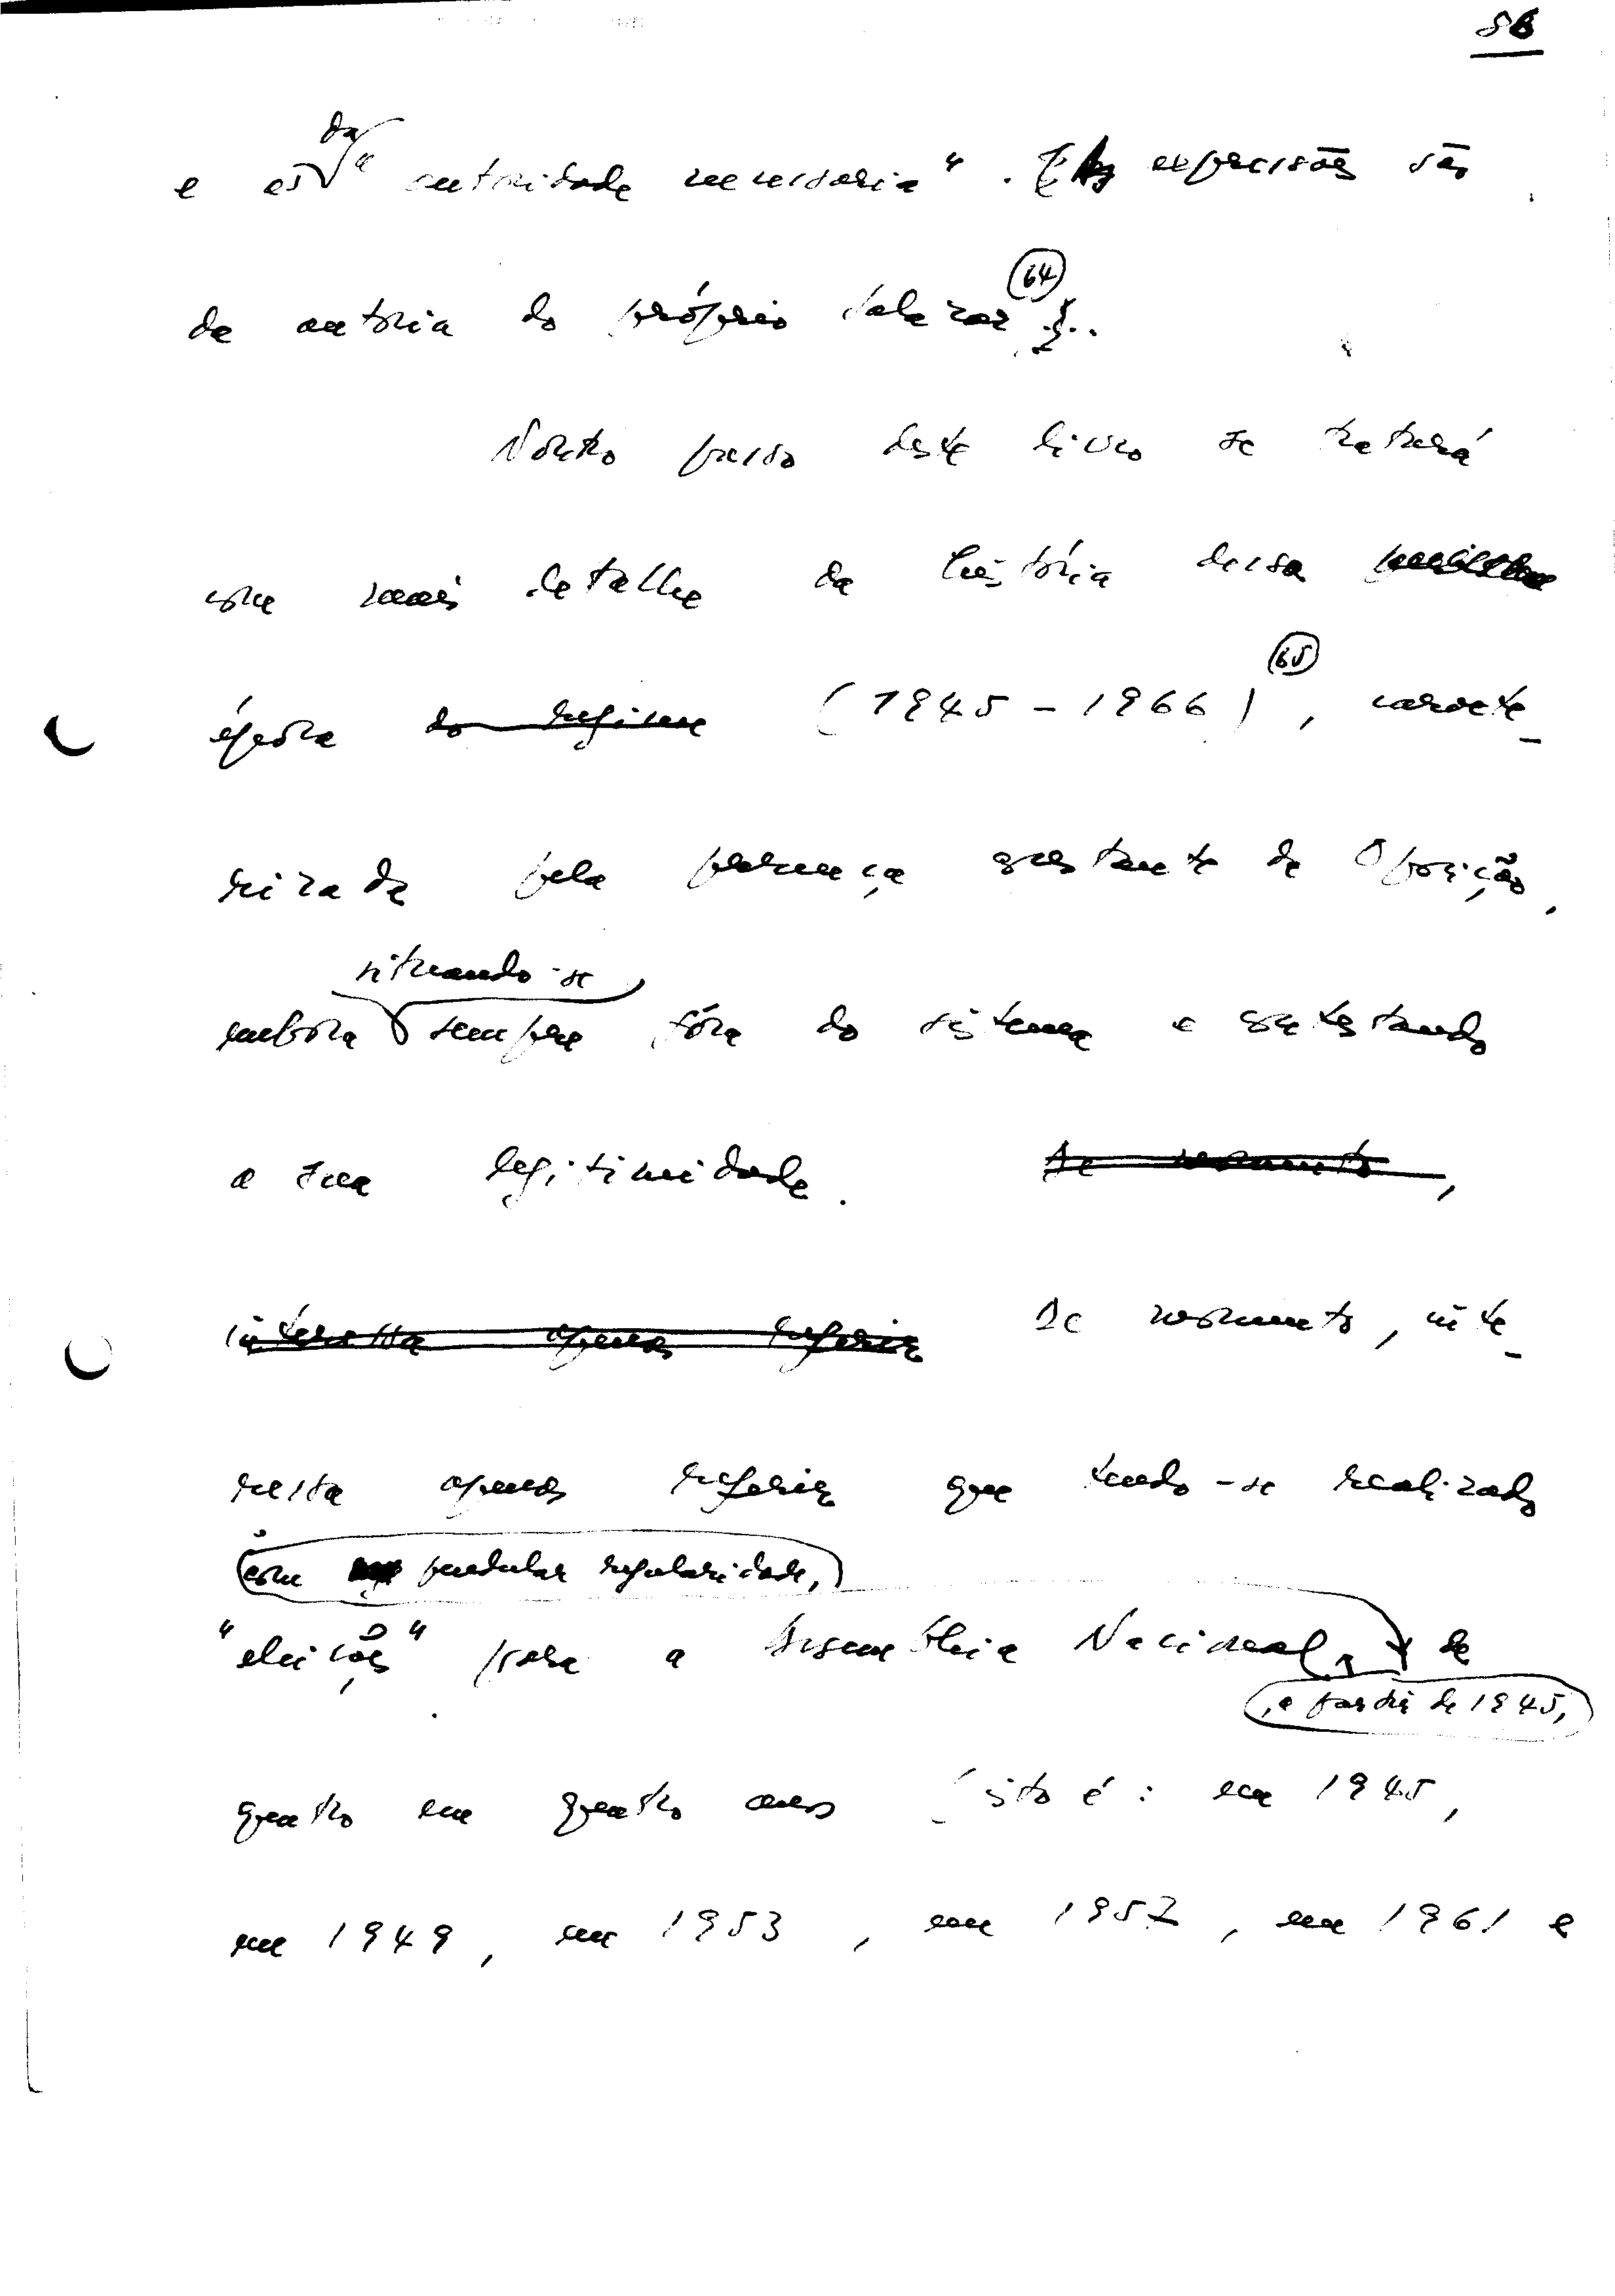 86
da
e os "autoridade necessária". As expressões são
da autoria do próprio Salazar (64).
Noutro passo deste livro se tratará
com mais detalhe da história dessa
época do regime (1945-1966) (65), caracte-
rizada pela presença constante da Oposição,
situando-se
embora sempre fóra do sistema e contestando
a sua legitimidade. De momento,
interessa apenas referir De momento, inte-
ressa apenas referir que tendo-se realizado
com pendular regularidade,
"eleições" para a Assembleia Nacional, de
, a partir de 1945,
quatro em quatro anos (isto é: em 1945,
em 1949, em 1953, em 1957, em 1961 e